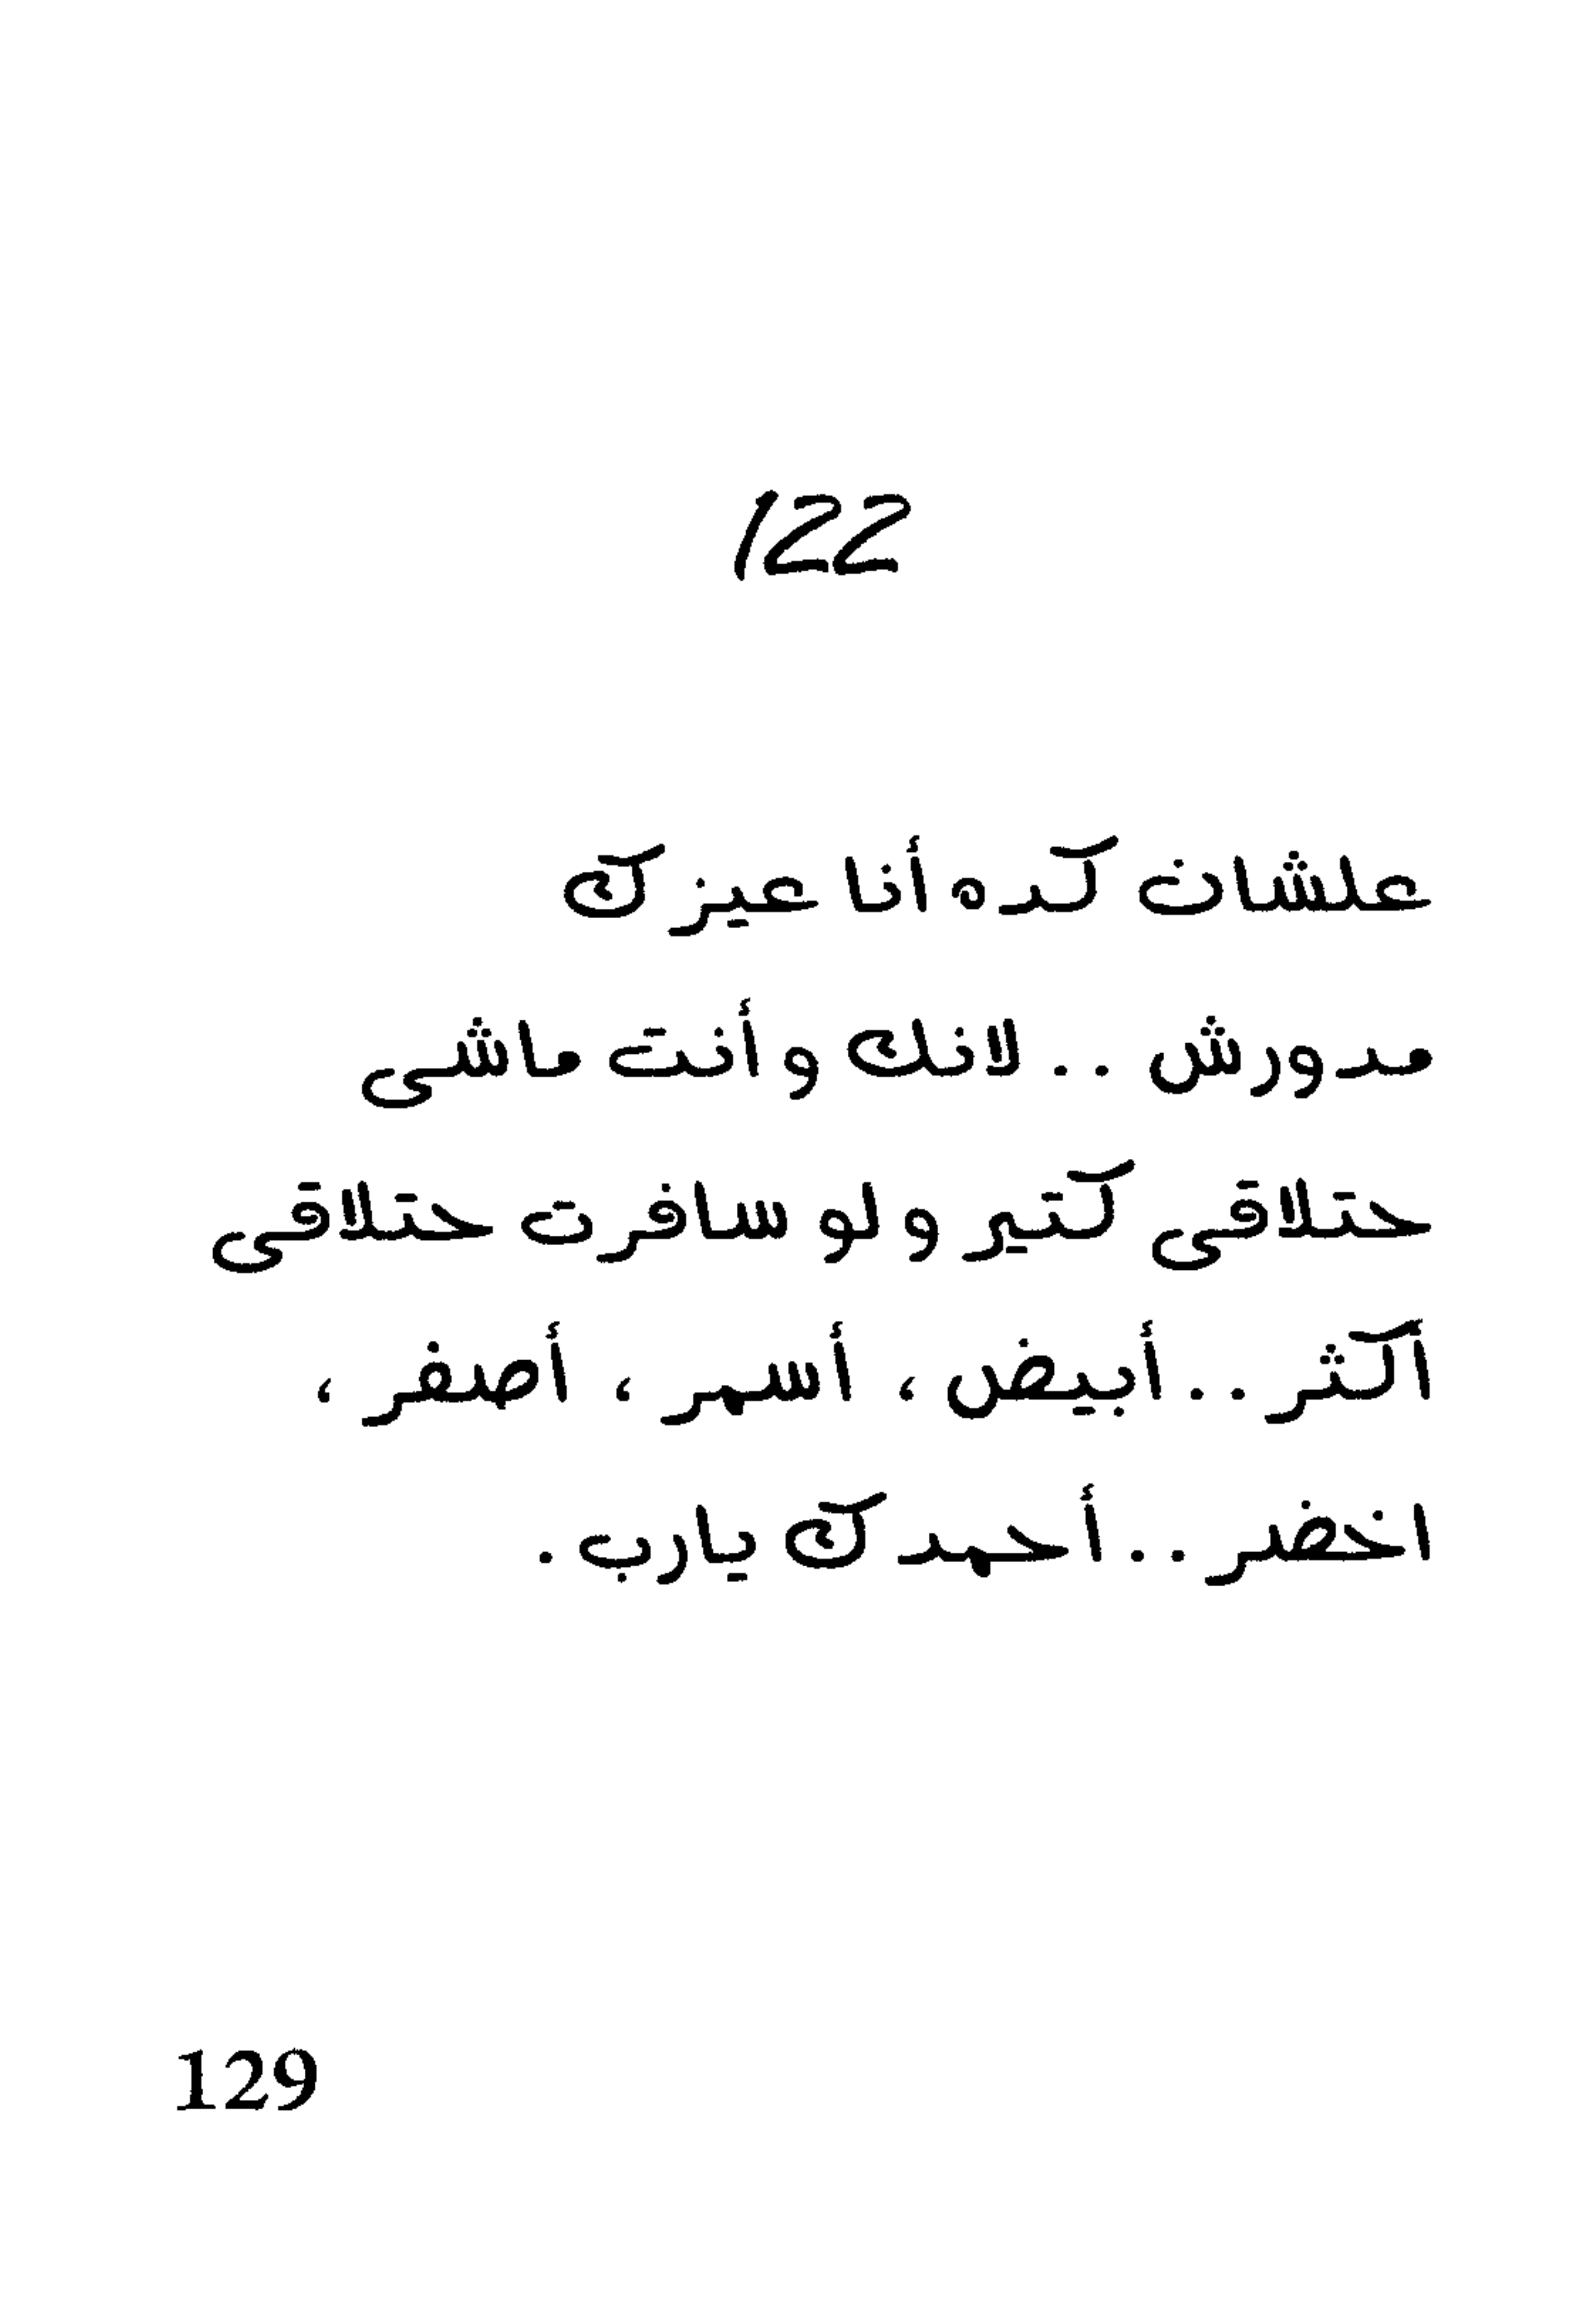 122
علشان كده أنا عيزك
مدورش .. لانك وأنت ماشى
حتلاقى كتير ولو سافرت حتلاقى
أكثر .. أبيض، أسمر، أصفر،
اخضر .. أحمدك يارب.
129